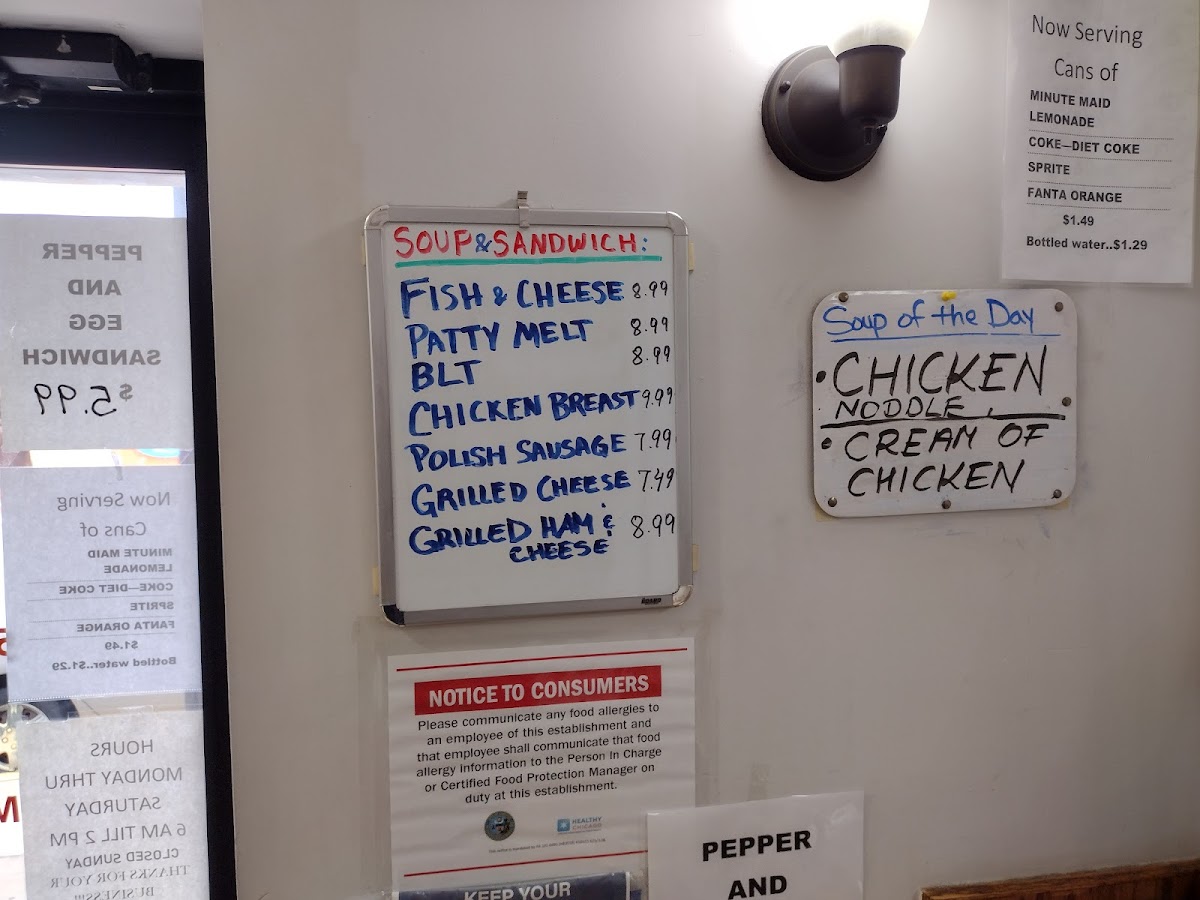 PEPPER
AND
EGG
SANDWICH
$5.99
Now Serving
Cans of
MINUTE MAID
LEMONADE
COKE—DIET COKE
SPRITE
FANTA ORANGE
$1.49
Bottled water..$1.29
HOURS
MONDAY THRU
SATURDAY
6 AM TILL 2 PM
CLOSED SUNDAY
THANKS FOR YOUR
BUSINESS!!!
SOUP & SANDWICH:
FISH & CHEESE 8.99
PATTY MELT 8.99
BLT 8.99
CHICKEN BREAST 9.99
POLISH SAUSAGE 7.99
GRILLED CHEESE 7.49
GRILLED HAM & 8.99
CHEESE
NOTICE TO CONSUMERS
Please communicate any food allergies to
an employee of this establishment and
that employee shall communicate that food
allergy information to the Person In Charge
or Certified Food Protection Manager on
duty at this establishment.
HEALTHY
CHICAGO
KEEP YOUR
PEPPER
AND
Soup of the Day
• CHICKEN
NODDLE.
• CREAM OF
CHICKEN
Now Serving
Cans of
MINUTE MAID
LEMONADE
COKE—DIET COKE
SPRITE
FANTA ORANGE
$1.49
Bottled water..$1.29